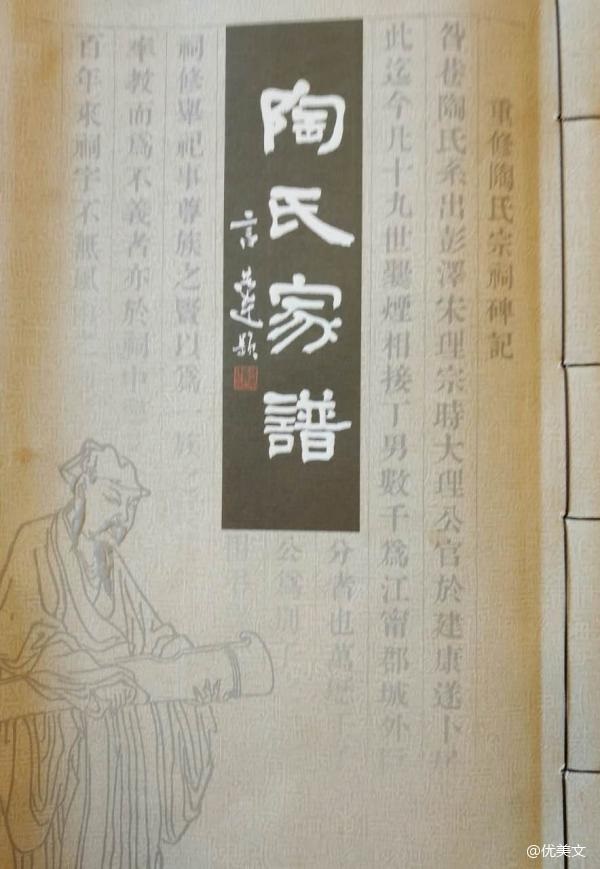 陶氏家譜
言恭達題
重修陶氏宗祠碑記
昝巷陶氏系出彭澤宋理宗時大理公官於建康遂卜
此迄今凡十九世爨煙相接丁男數千爲江甯郡城外
分者也萬歷丁
公爲別
祠修畢祀事尊族之賢以爲一族之
率教而爲不義者亦於祠中
百年來祠宇不無風雨
@优美文